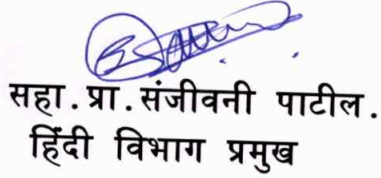 सहा.प्रा.संजीवनी पाटील.
हिंदी विभाग प्रमुख